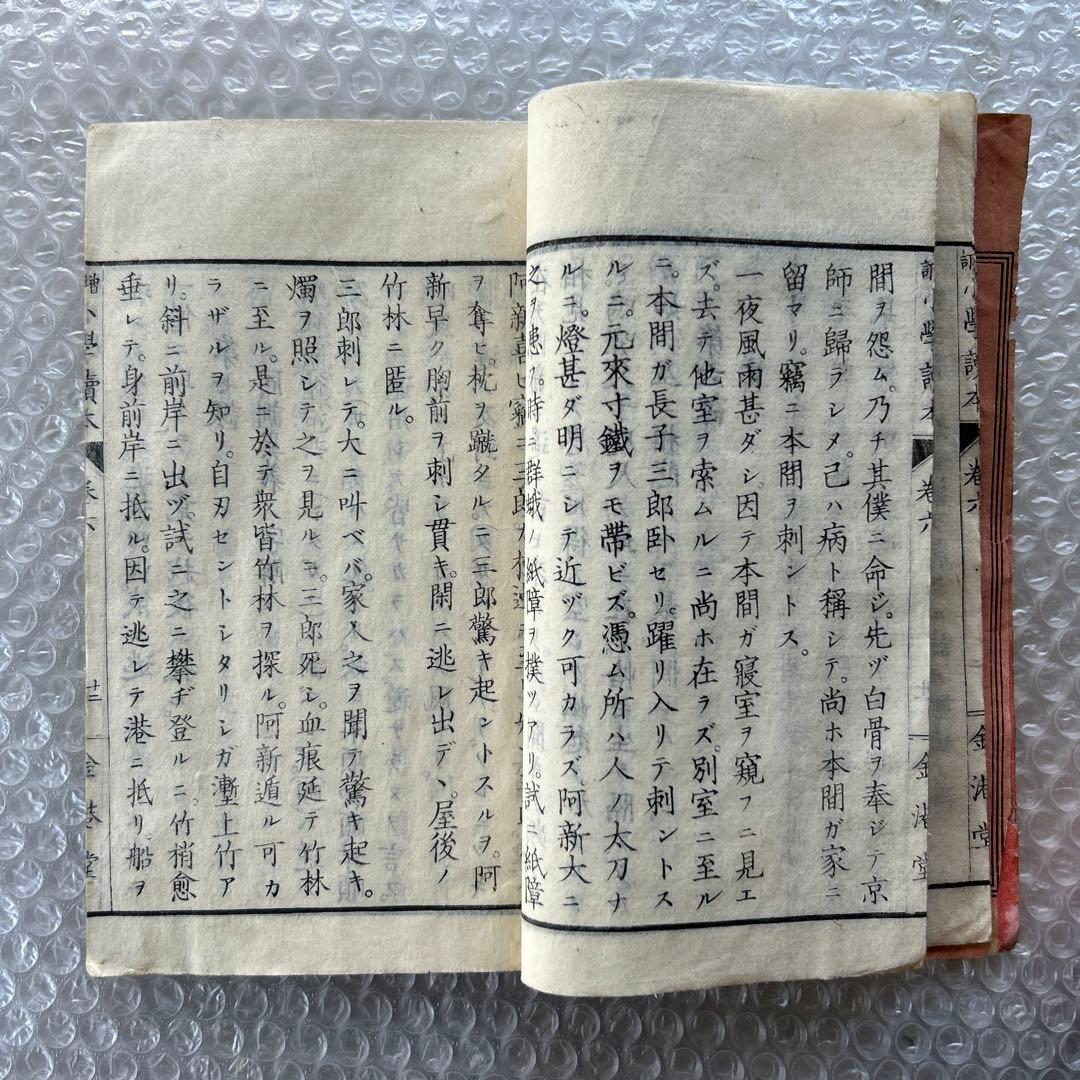 間ヲ怨ム。乃チ其僕ニ命ジ。先ヅ白骨ヲ奉ジテ京
師ニ歸ラシメ。己ハ病ト稱シテ。尚ホ本間ガ家ニ
留マリ。竊ニ本間ヲ刺ントス。
一夜風雨甚ダシ。因テ本間ガ寢室ヲ窺フニ見エ
ズ。去テ他室ヲ索ムルニ尚ホ在ラズ。別室ニ至ル
ニ。本間ガ長子三郎臥セリ。躍リ入リテ刺ントス
ルニ。元來寸鐵ヲモ帶ビズ。憑ム所ハ人ノ太刀ナ
ルニ。燈甚ダ明ニシテ近ヅク可カラズ。阿新大ニ
之ヲ患フ。時ニ群蛾ノ紙障ヲ撲ツアリ。試ニ紙障
阿新喜ビ竊ニ三郎ガ
ヲ奪ヒ。枕ヲ蹴タルニ三郎驚キ起ントスルヲ。阿
新早ク胸前ヲ刺シ貫キ。閑ニ逃レ出デヽ。屋後ノ
竹林ニ匿ル。
三郎刺レテ。大ニ叫ベバ。家人之ヲ聞テ驚キ起キ。
燭ヲ照シテ之ヲ見ルニ。三郎死シ。血痕延テ竹林
ニ至ル。是ニ於テ衆皆竹林ヲ探ル。阿新遁ル可カ
ラザルヲ知リ。自刃セントシタリシガ。塹上竹ア
リ。斜ニ前岸ニ出ヅ。試ニ之ニ攀ヂ登ルニ。竹梢愈
垂レテ。身前岸ニ抵ル。因テ逃レテ港ニ抵リ。船ヲ
小學讀本
卷六
金港堂
小學讀本
卷六
金港堂
小學讀本 卷六 十二 金港堂